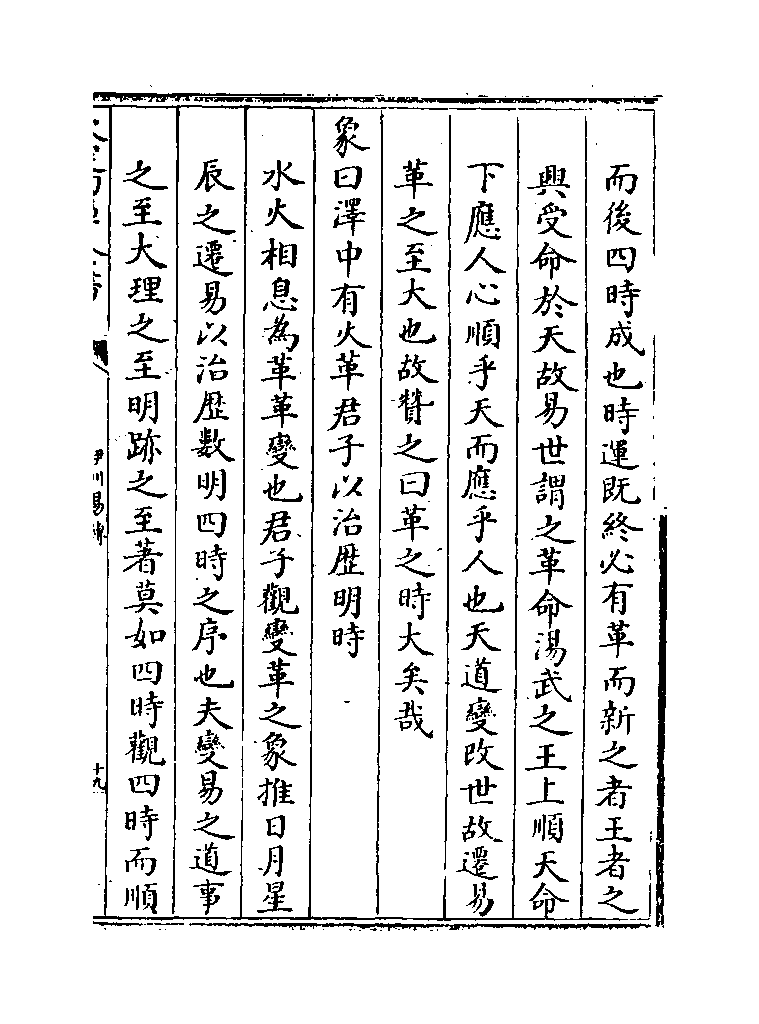 而後四時成也時運既終必有革而新之者王者之
興受命於天故易世謂之革命湯武之王上順天命
下應人心順乎天而應乎人也天道變改世故遷易
革之至大也故贊之曰革之時大矣哉
象曰澤中有火革君子以治歴明時
水火相息為革革變也君子觀變革之象推日月星
辰之遷易以治歴數明四時之序也夫變易之道事
之至大理之至明跡之至著莫如四時觀四時而順
伊川易傳
十九